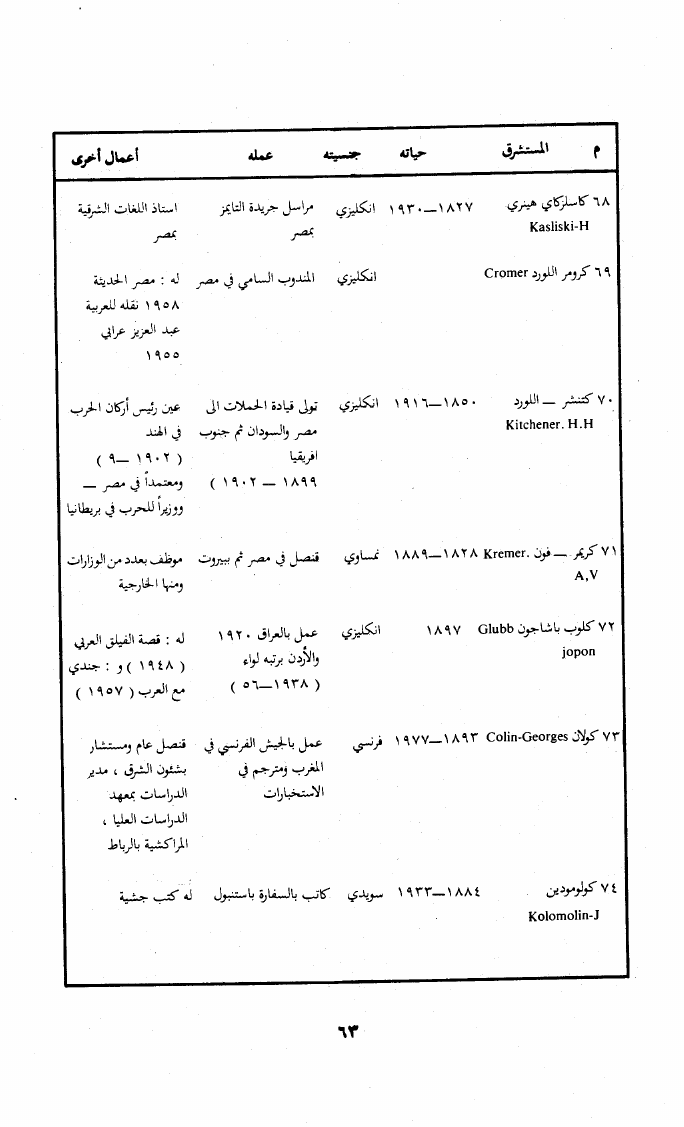 م المستشرق حياته جنسيته عمله أعمال أخرى
٦٨ كاسلزكاي هينري ١٨٢٧—١٩٣٠ انكليزي مراسل جريدة التايمز استاذ اللغات الشرقية
Kasliski-H بمصر بمصر
٦٩ كرومر اللورد Cromer انكليزي المندوب السامي في مصر له : مصر الحديثة
١٩٥٨ نقله للعربية
عبد العزيز عرابي
١٩٥٥
٧٠ كتنشر — اللورد ١٨٥٠—١٩١٦ انكليزي تولى قيادة الحملات الى عين رئيس أركان الحرب
Kitchener. H.H مصر والسودان ثم جنوب في الهند
افريقيا ( ١٩٠٢ —٩ )
١٨٩٩ — ١٩٠٢ ) ومعتمداً في مصر —
ووزيراً للحرب في بريطانيا
٧١ كريمر — فون Kremer. ١٨٢٨—١٨٨٩ نمساوي قنصل في مصر ثم ببيروت موظف بعدد من الوزارات
A,V ومنها الخارجية
٧٢ كلوب باشاجون Glubb ١٨٩٧ انكليزي عمل بالعراق ١٩٢٠ له : قصة الفيلق العربي
jopon والأردن برتبه لواء ( ١٩٤٨ ) و : جندي
( ١٩٣٨—٥٦ ) مع العرب ( ١٩٥٧ )
٧٣ كولان Colin-Georges ١٨٩٣—١٩٧٧ فرنسي عمل بالجيش الفرنسي في قنصل عام ومستشار
المغرب ومترجم في بشئون الشرق ، مدير
الاستخبارات الدراسات بمعهد
الدراسات العليا ،
المراكشية بالرباط
٧٤ كولومودين ١٨٨٤—١٩٣٣ سويدي كاتب بالسفارة باستنبول له كتب جشية
Kolomolin-J
٦٣